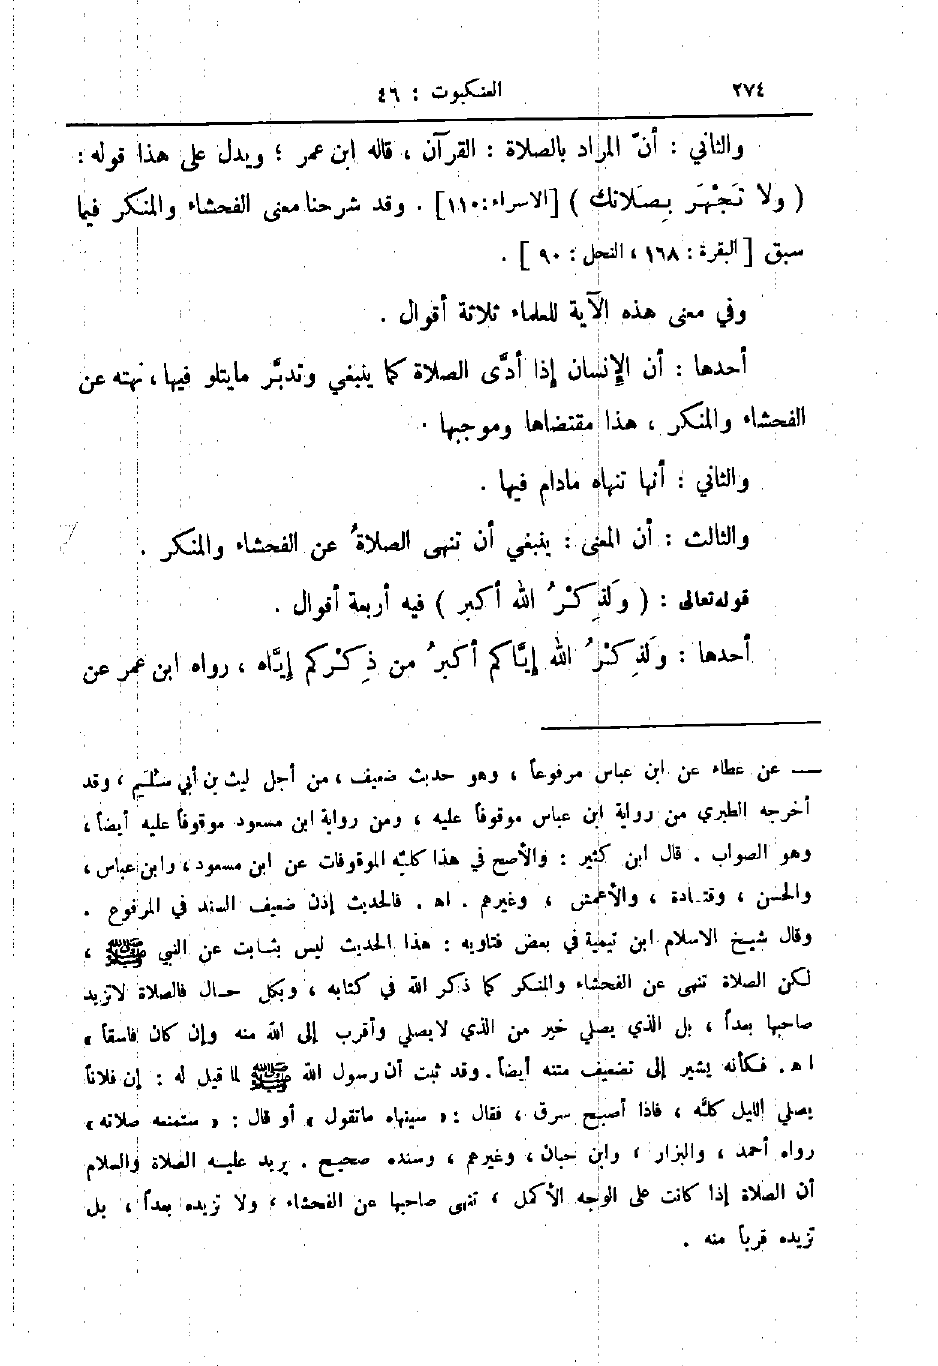 ٢٧٤
العنكبوت : ٤٦
والثاني : أنّ المراد بالصلاة : القرآن ، قاله ابن عمر ؛ ويدل على هذا قوله :
( ولا تَجْهَر بِصَلاتك ) [الاسراء:١١٠] . وقد شرحنا معنى الفحشاء والمنكر فيما
سبق [ البقرة : ١٦٨ ، النحل : ٩٠ ] .
وفي معنى هذه الآية للعلماء ثلاثة أقوال .
أحدها : أن الإنسان إذا أدَّى الصلاة كما ينبغي وتدبَّر مايتلو فيها ، نهته عن
الفحشاء والمنكر ، هذا مقتضاها وموجبها .
والثاني : أنها تنهاه مادام فيها .
والثالث : أن المعنى : ينبغي أن تنهى الصلاةُ عن الفحشاء والمنكر .
قوله تعالى : ( ولَذِكْرُ الله أكبر ) فيه أربعة أقوال .
أحدها : ولَذِكْرُ الله إيَّاكم أكبرُ من ذِكْركم إيَّاه ، رواه ابن عمر عن
— عن عطاء عن ابن عباس مرفوعاً ، وهو حديث ضعيف ، من أجل ليث بن أبي سُلَيم ، وقد
أخرجه الطبري من رواية ابن عباس موقوفاً عليه ، ومن رواية ابن مسعود موقوفاً عليه أيضاً ،
وهو الصواب . قال ابن كثير : والأصح في هذا كلّه الموقوفات عن ابن مسعود ، وابن عباس ،
والحسن ، وقتادة ، والأعمش ، وغيرهم . اه . فالحديث إذن ضعيف السند في المرفوع .
وقال شيخ الاسلام ابن تيمية في بعض فتاويه : هذا الحديث ليس بثابت عن النبي ﷺ ،
لكن الصلاة تنهى عن الفحشاء والمنكر كما ذكر الله في كتابه ، وبكل حال فالصلاة لاتزيد
صاحبها بعداً ، بل الذي يصلي خير من الذي لايصلي وأقرب إلى الله منه وإن كان فاسقاً »
اه. فكأنه يشير إلى تضعيف متنه أيضاً . وقد ثبت أن رسول الله ﷺ لما قيل له : إن فلاناً
يصلي الليل كلَّه ، فاذا أصبح سرق ، فقال : « سينهاه ماتقول » أو قال : « ستمنعه صلاته »
رواه أحمد ، والبزار ، وابن حبان ، وغيرهم ، وسنده صحيح . يريد عليه الصلاة والسلام
أن الصلاة إذا كانت على الوجه الأكمل ، تنهى صاحبها عن الفحشاء ، ولا تزيده بعداً ، بل
تزيده قرباً منه .